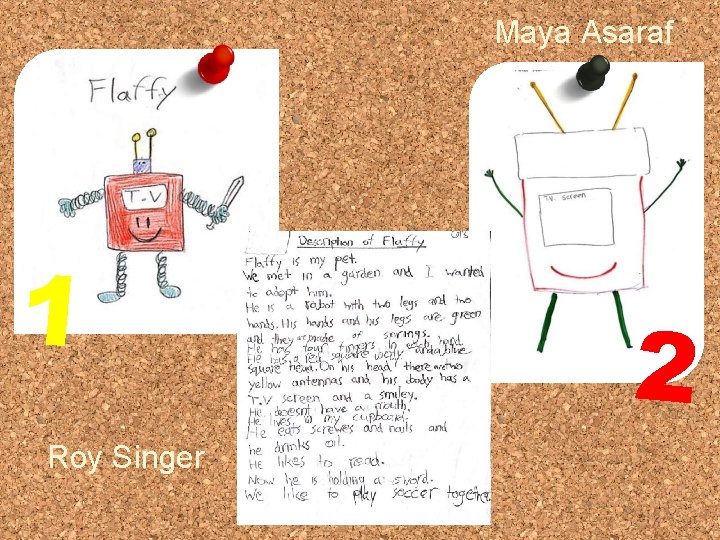 Maya Asaraf
Flaffy
T.V
1
Roy Singer
Description of Flaffy
Flaffy is my pet.
We met in a garden and I wanted
to adopt him.
He is a robot with two legs and two
hands. His hands and his legs are green
and they are made of springs.
He has four fingers in each hand
He has a red square body and a blue
square head. On his head there are two
yellow antennas and his body has a
T.V screen and a smiley.
He doesn't have a mouth.
He lives in my cupboard.
He eats screwes and nails and
he drinks oil.
He likes to read.
Now he is holding a sword.
We like to play soccer together
T.V. screen
2